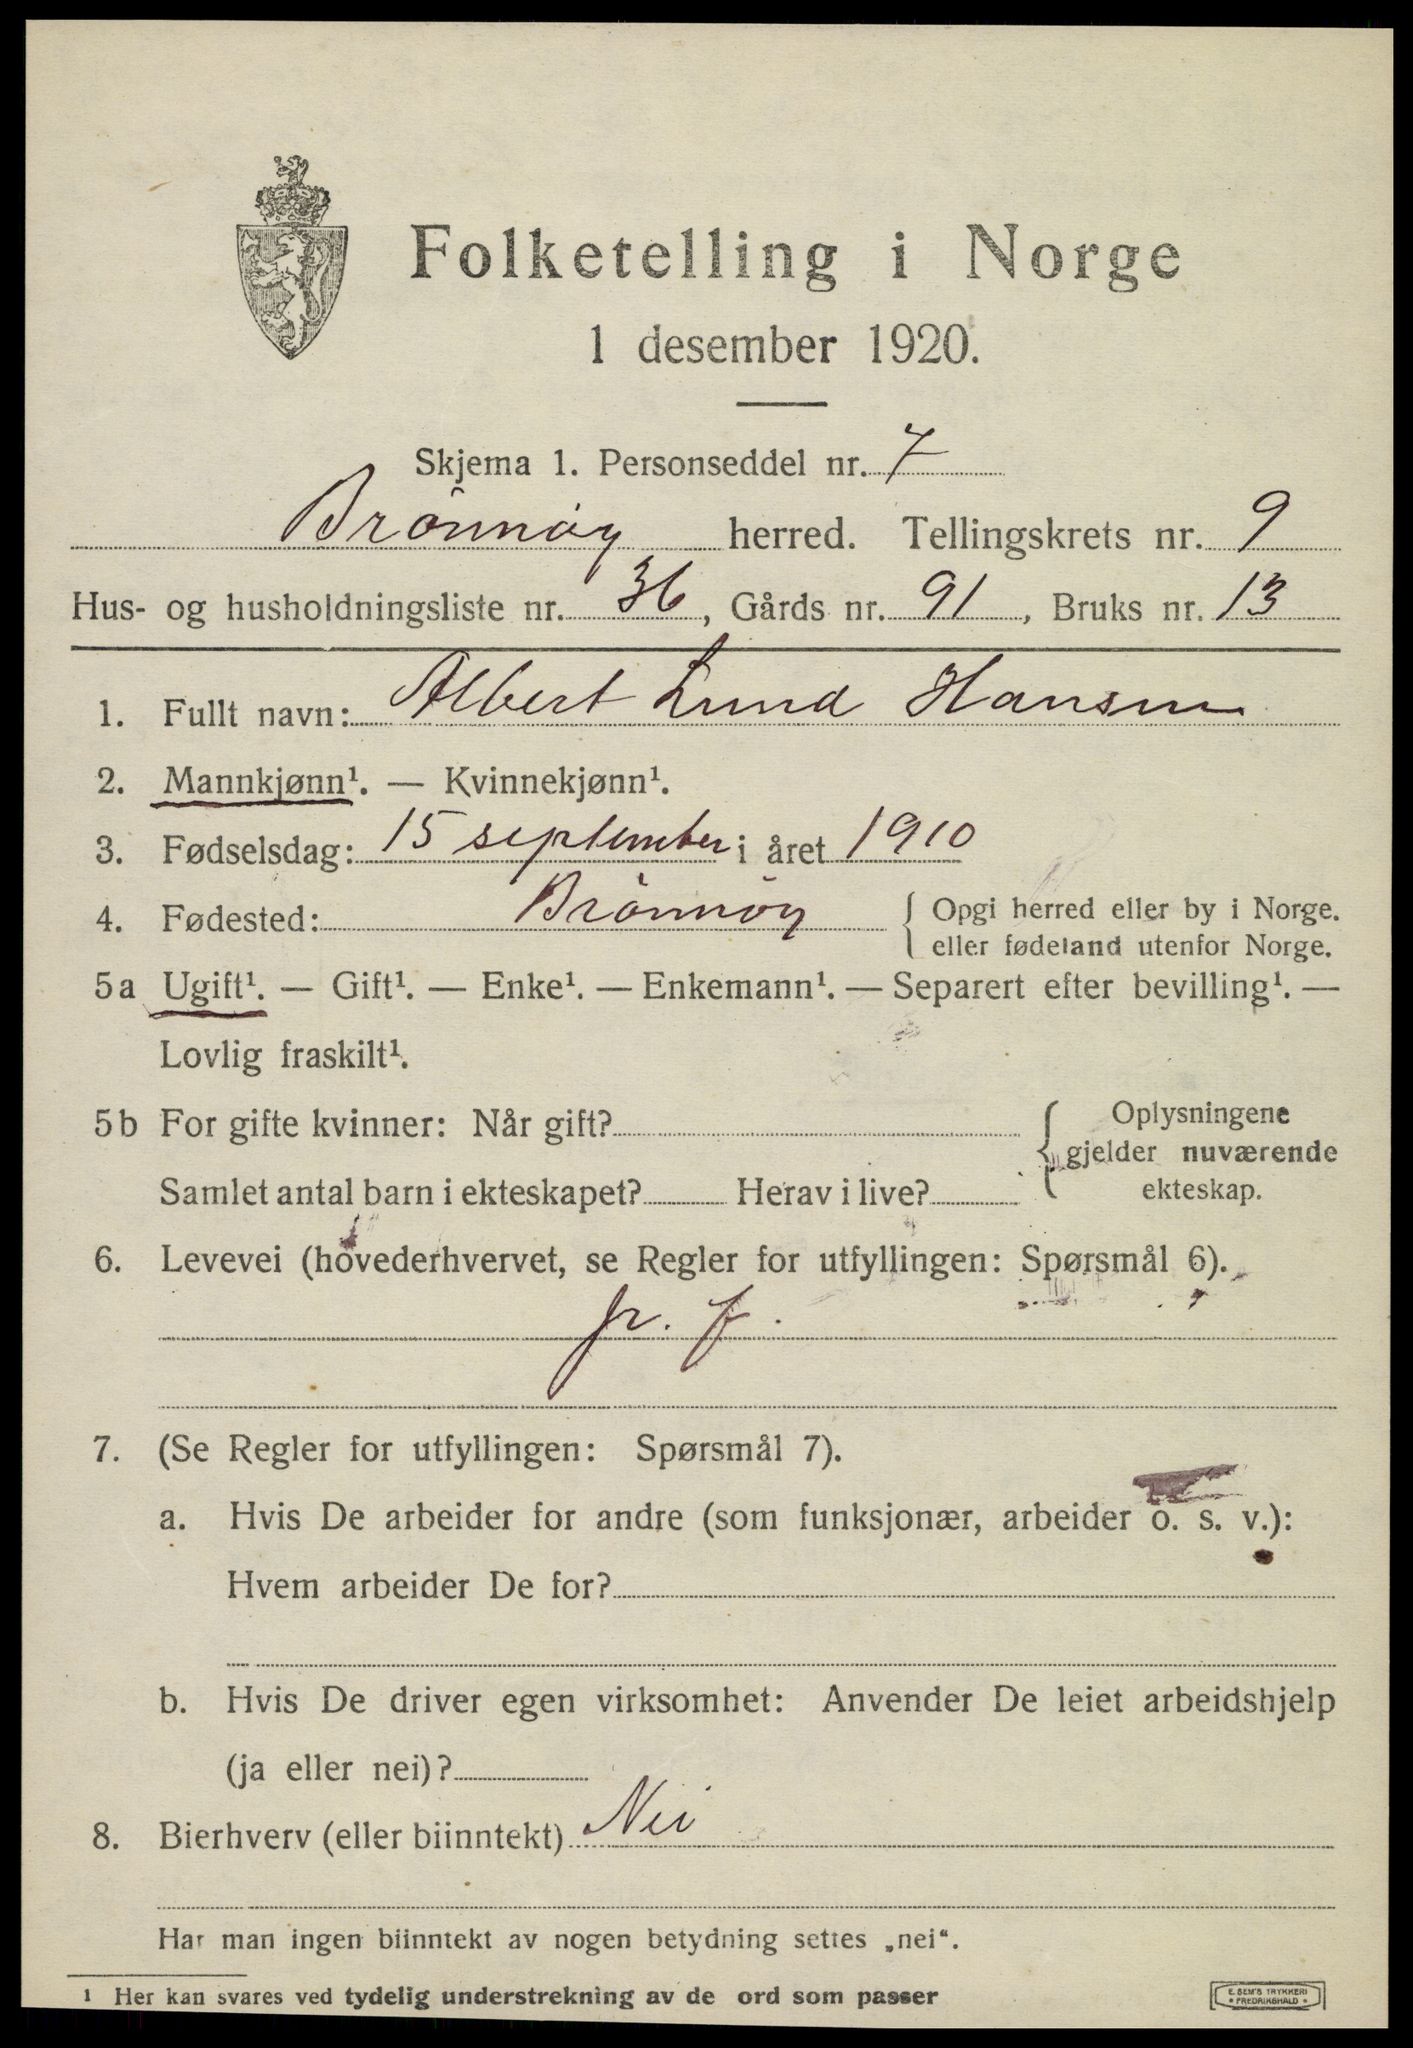 Folketelling i Norge
1 desember 1920.
Skjema 1. Personseddel nr. 7
Brönnöy herred. Tellingskrets nr. 9
Hus- og husholdningsliste nr. 36, Gårds nr. 91, Bruks nr. 13
1. Fullt navn: Albert Lund Hansen
2. Mannkjønn¹. — Kvinnekjønn¹.
3. Fødselsdag: 15 september i året 1910
4. Fødested: Brönnöy { Opgi herred eller by i Norge.
eller fødeland utenfor Norge.
5a Ugift¹. — Gift¹. — Enke¹. — Enkemann¹. — Separert efter bevilling¹. —
Lovlig fraskilt¹.
5b For gifte kvinner: Når gift? { Oplysningene
gjelder nuværende
Samlet antal barn i ekteskapet? Herav i live? ekteskap.
6. Levevei (hovederhvervet, se Regler for utfyllingen: Spørsmål 6).
fr. f.
7. (Se Regler for utfyllingen: Spørsmål 7).
a. Hvis De arbeider for andre (som funksjonær, arbeider o. s. v.):
Hvem arbeider De for?
b. Hvis De driver egen virksomhet: Anvender De leiet arbeidshjelp
(ja eller nei)?
8. Bierhverv (eller biinntekt) Nei
Har man ingen biinntekt av nogen betydning settes „nei“.
1 Her kan svares ved tydelig understrekning av de ord som passer
E. SEM'S TRYKKERI
• FREDRIKSHALD •